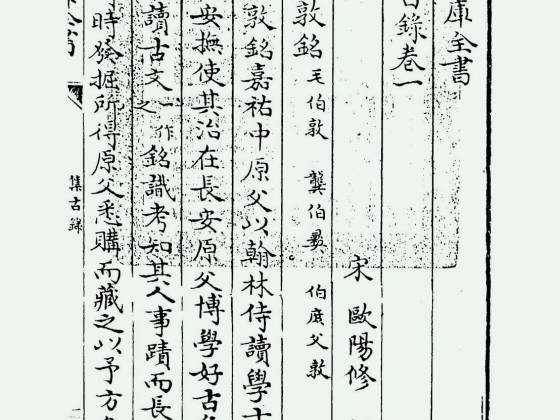 庫全書
古錄卷一
宋 歐陽修
敦銘 毛伯敦 龔伯彞 伯庶父敦
敦銘嘉祐中原父以翰林侍讀學士
安撫使其治在長安原父博學好古
讀古文之一作銘識考知其人事蹟而長
時發掘所得原父悉購而藏之以予方
集古錄